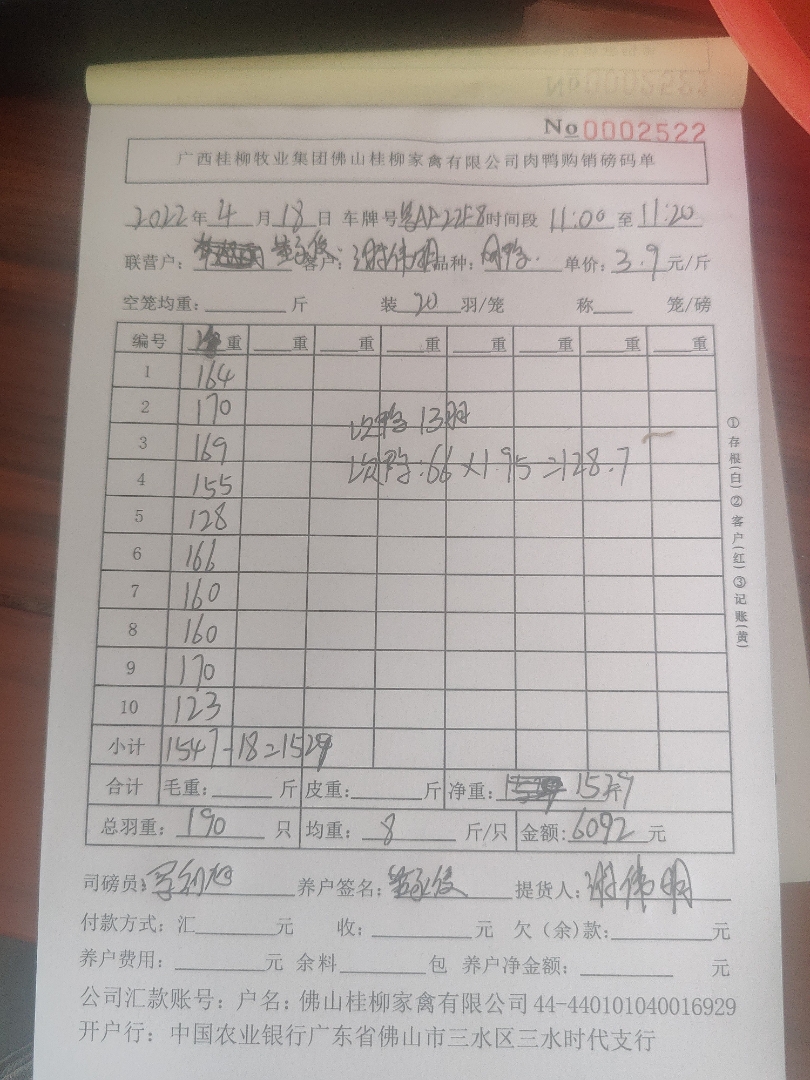 No 0002522
广西桂柳牧业集团佛山桂柳家禽有限公司肉鸭购销磅码单
2022年4月18日 车牌号粤AF22F8时间段 11:00至11:20
联营户: 客户:谢伟明品种:肉鸭. 单价:3.9元/斤
空笼均重: 斤 装20羽/笼 称 笼/磅
编号 重 重 重 重 重 重 重 重
1 164
2 170
次鸭 13羽
3 169
次鸭:66×1.95=128.7
4 155
5 128
6 166
7 160
8 160
9 170
10 123
小计 1547-18=1529
合计 毛重: 斤 皮重: 斤 净重: 1529斤
总羽重:190只 均重:8斤/只 金额:6092元
司磅员: 养户签名: 提货人:谢伟明
付款方式:汇 元 收: 元 欠(余)款: 元
养户费用: 元 余料 包 养户净金额: 元
公司汇款账号:户名:佛山桂柳家禽有限公司44-440101040016929
开户行:中国农业银行广东省佛山市三水区三水时代支行
①存根(白)②客户(红)③记账(黄)